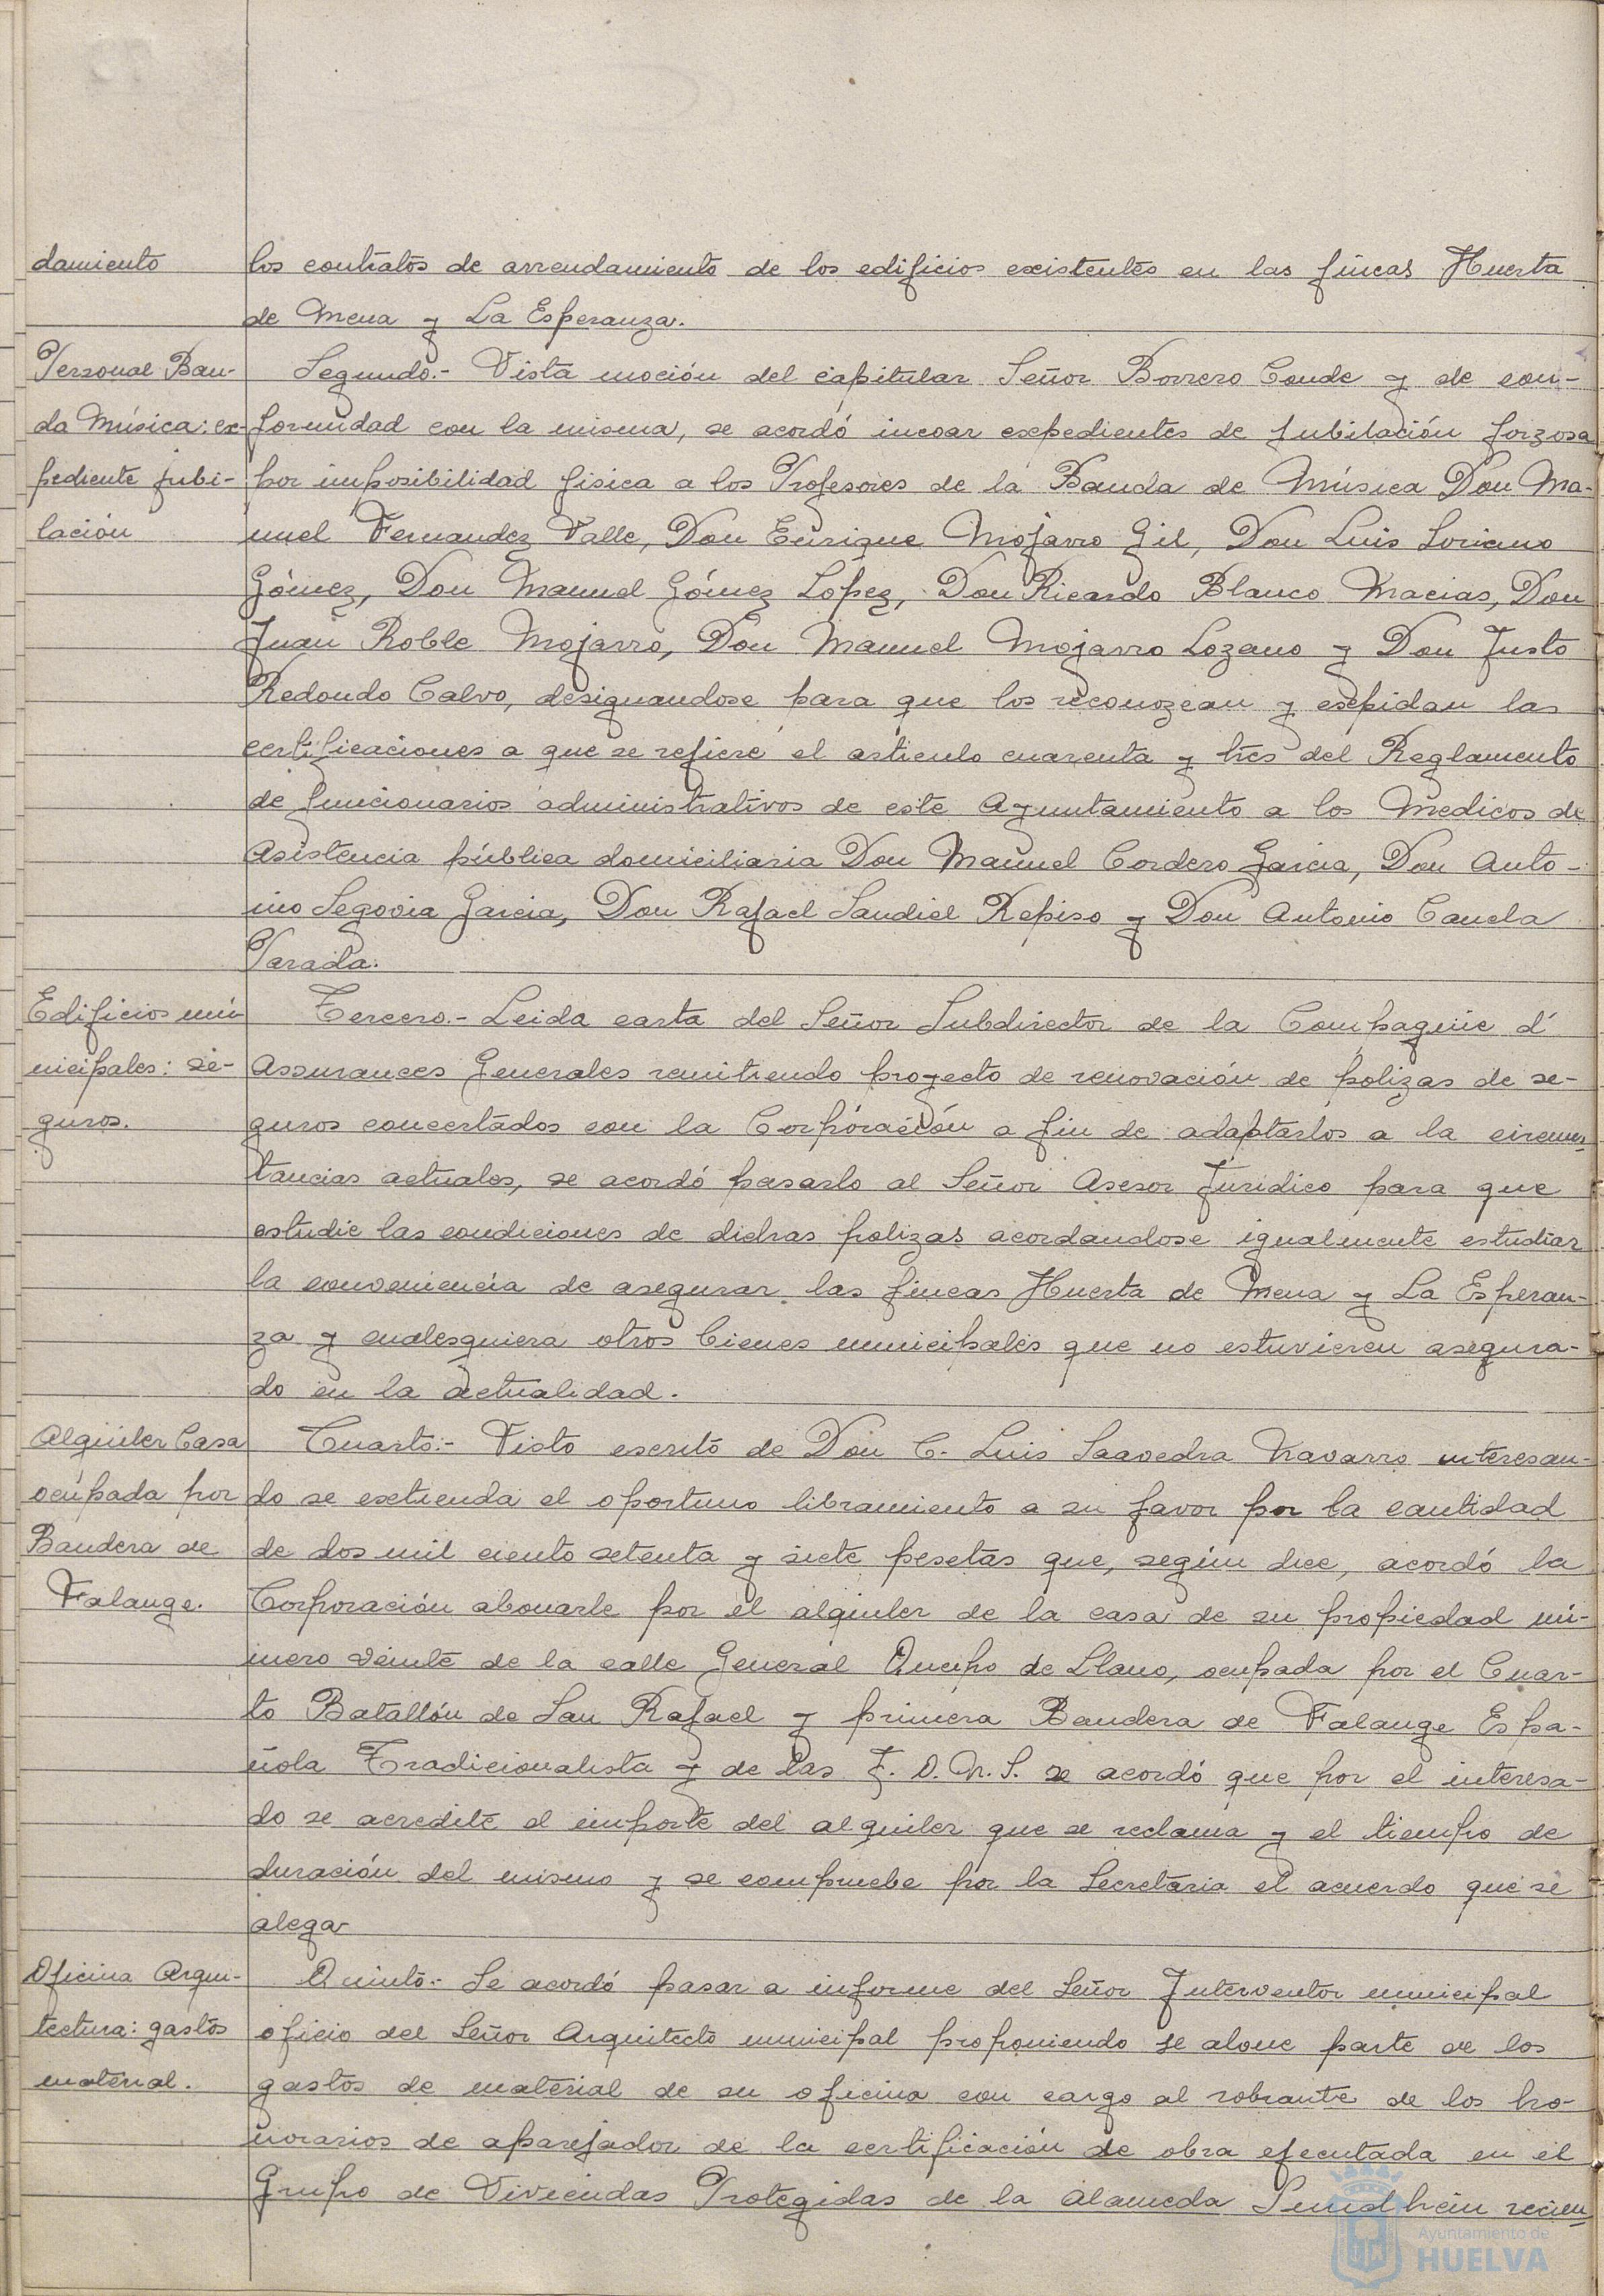 damiento
los contratos de arrendamiento de los edificios existentes en las fincas Huerta
de Mena y La Esperanza.
Personal Ban-
da Música: ex-
pediente jubi-
lación
Segundo.- Vista moción del capitular Señor Borrero Conde y de con-
formidad con la misma, se acordó incoar expedientes de jubilación forzosa
por imposibilidad fisica a los Profesores de la Banda de Música Don Ma-
nuel Fernandez Valle, Don Enrique Mojarro Gil, Don Luis Soriano
Gómez, Don Manuel Gómez López, Don Ricardo Blanco Macias, Don
Juan Roble Mojarro, Don Manuel Mojarro Lozano y Don Justo
Redondo Calvo, designandose para que los reconozcan y expidan las
certificaciones a que se refiere el articulo cuarenta y tres del Reglamento
de funcionarios administrativos de este Ayuntamiento a los Medicos de
Asistencia pública domiciliaria Don Manuel Cordero Garcia, Don Anto-
nio Segovia Garcia, Don Rafael Sandiel Repiso y Don Antonio Canela
Parada.
Edificios mu-
nicipales: se-
guros.
Tercero.- Leida carta del Señor Subdirector de la Compagnie d'
Assurances Generales remitiendo proyecto de renovación de polizas de se-
guros concertados con la Corporación a fin de adaptarlos a la circuns-
tancias actuales, se acordó pasarlo al Señor Asesor Juridico para que
estudie las condiciones de dichas polizas acordandose igualmente estudiar
la conveniencia de asegurar las fincas Huerta de Mena y La Esperan-
za y cualesquiera otros bienes municipales que no estuvieren asegura-
do en la actualidad.
Alquiler Casa
ocupada por
Bandera de
Falange.
Cuarto:- Visto escrito de Don C. Luis Saavedra Navarro interesan-
do se extienda el oportuno libramiento a su favor por la cantidad
de dos mil ciento setenta y siete pesetas que, según dice, acordó la
Corporación abonarle por el alquiler de la casa de su propiedad nú-
mero veinte de la calle General Queipo de Llano, ocupada por el Cuar-
to Batallón de San Rafael y primera Bandera de Falange Espa-
ñola Tradicionalista y de las J.O.N.S. se acordó que por el interesa-
do se acredite el importe del alquiler que se reclama y el tiempo de
duración del mismo y se compruebe por la Secretaria el acuerdo que se
alega
Oficina Arqui-
tectura: gastos
material.
Quinto:- Se acordó pasar a informe del Señor Interventor municipal
oficio del Señor Arquitecto municipal proponiendo se abone parte de los
gastos de material de su oficina con cargo al sobrante de los ho-
norarios de aparejador de la certificación de obra ejecutada en el
Grupo de Viviendas Protegidas de la Alameda Sundheim recien
Ayuntamiento de
HUELVA